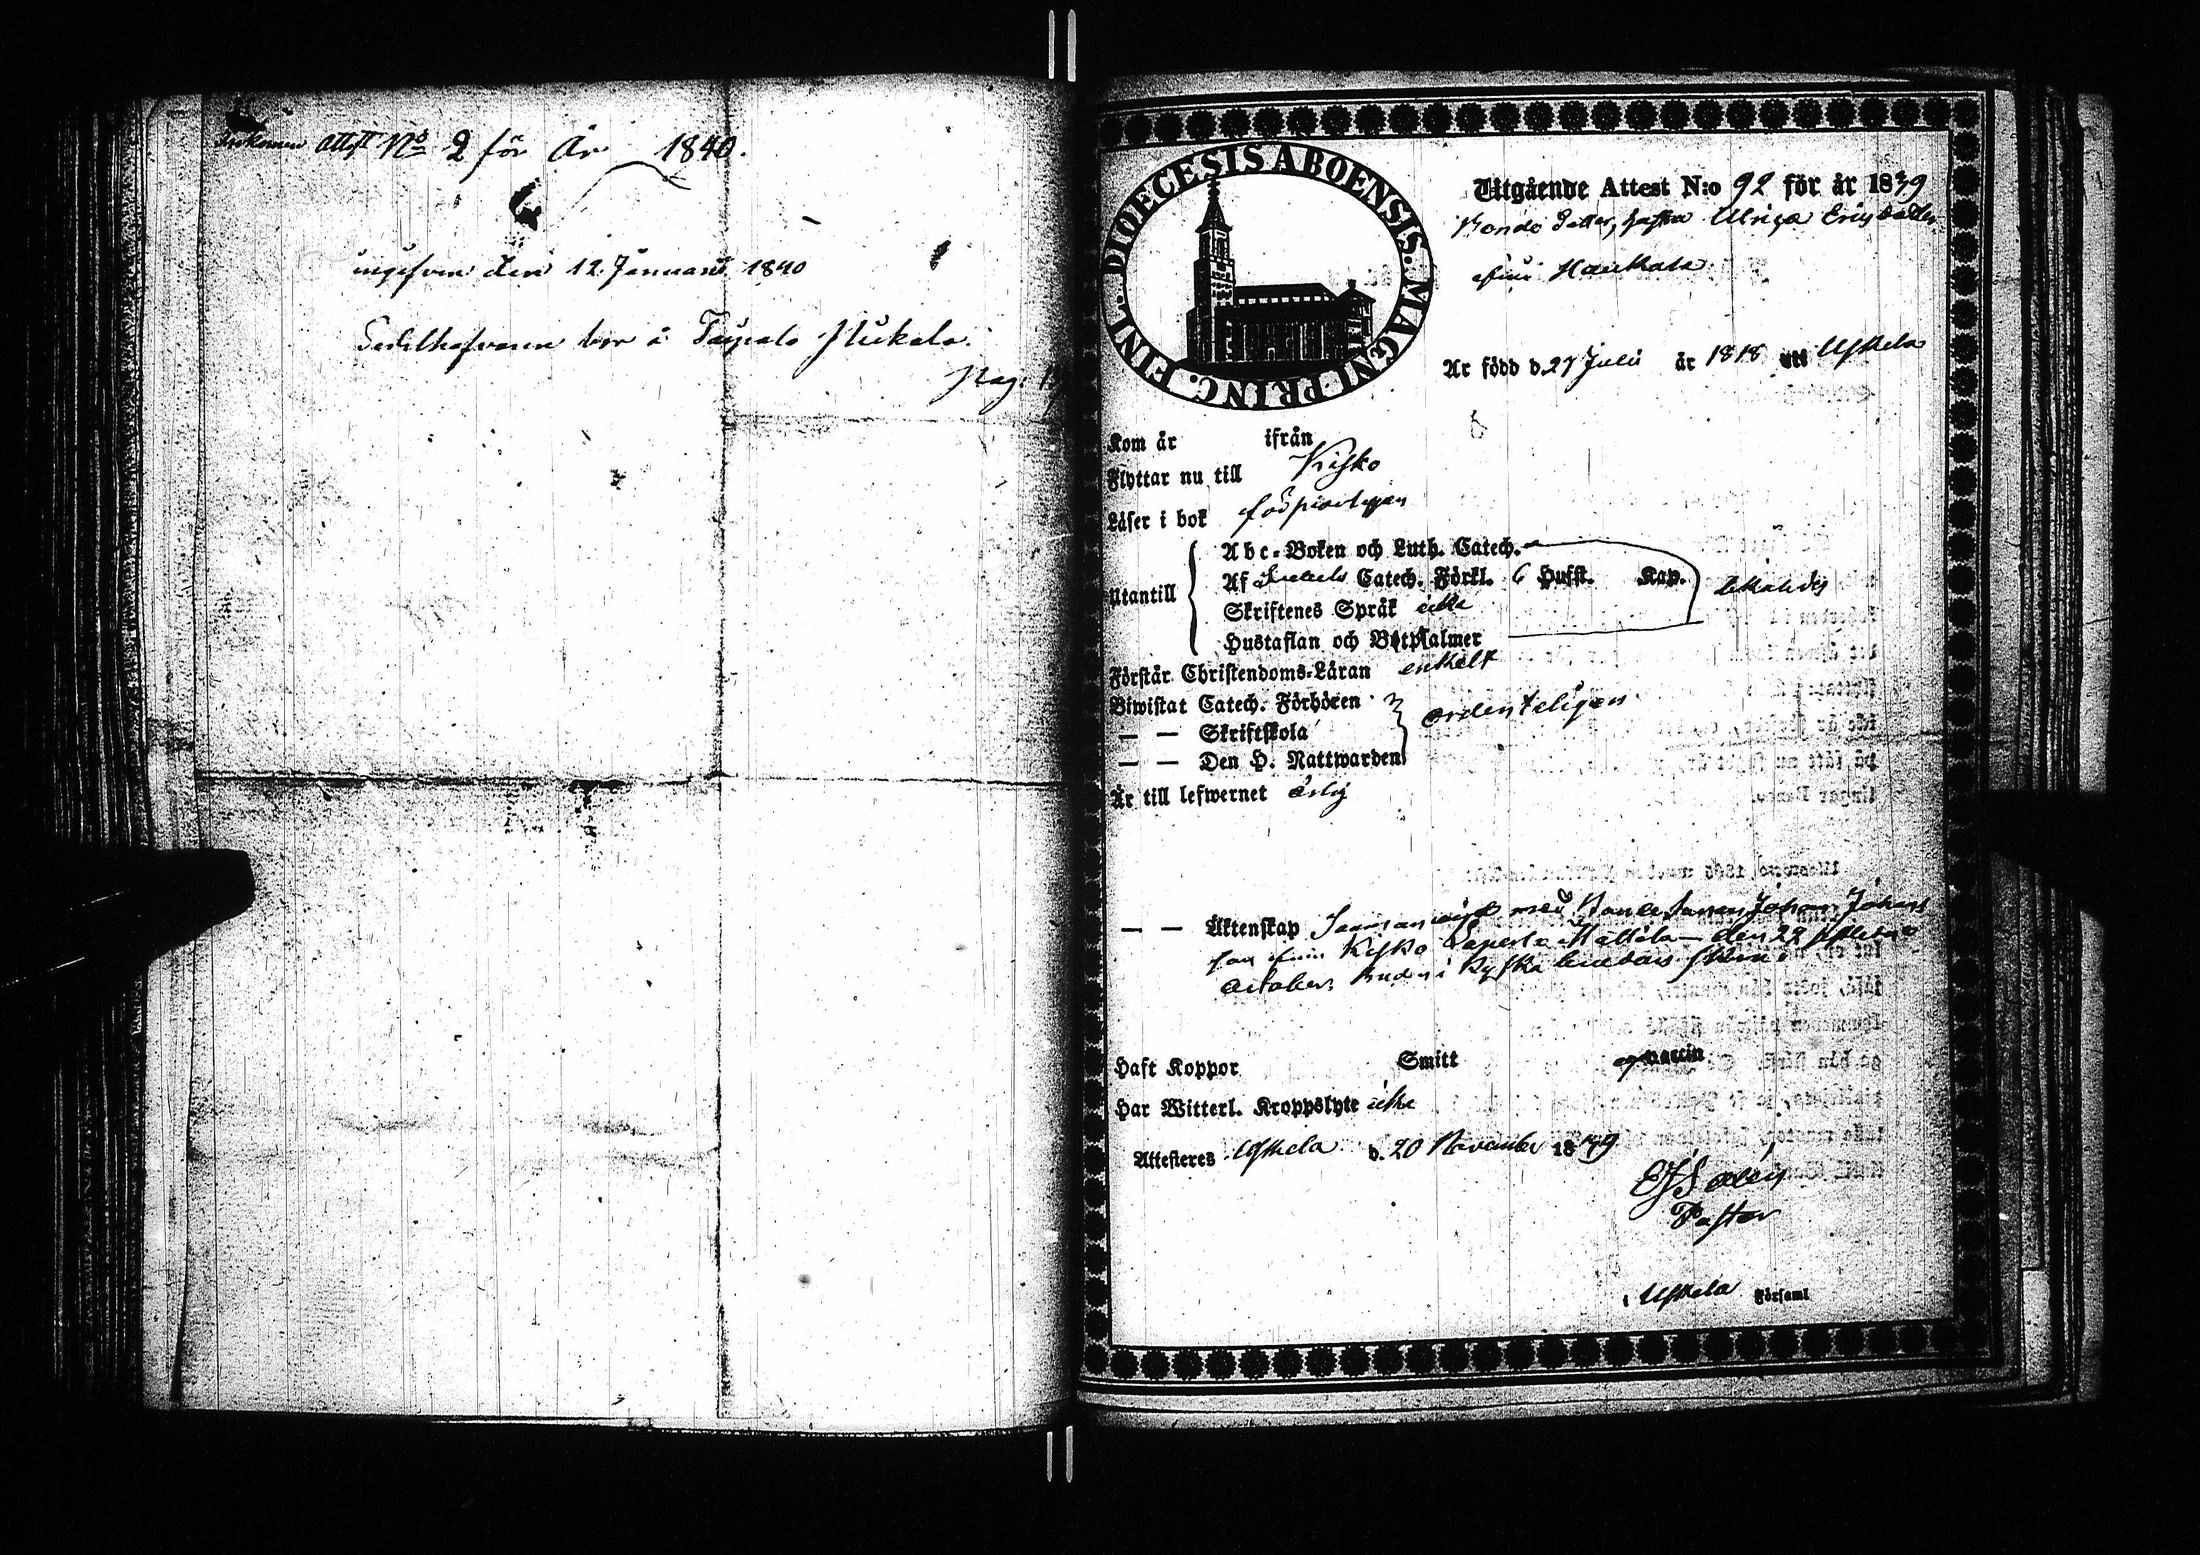 Inkommen Attest No 2 för År 1840.
ingifven den 12 Januari 1840
Sedelhafvaren bor å
Pag:
FINL. DIOECESIS ABOENSIS. MAGNI PRINC.
Utgående Attest N:o 92 för år 1839
Bonde Dotter, Ulrica Ericsdotter
ifrån Haukala
Är född d. 27 Julii år 1818 uti Uskela
Kom år ifrån
Flyttar nu till Kisko
Läser i bok
Utantill
Abc-Boken och Luth. Catech.
Af Catech. Förkl. 6 Hufst. Kap.
Skriftenes Språk icke
Hustaflan och Botpsalmer
Förstår Christendoms-Läran enkelt
Biwistat Catech. Förhören
— — Skriftskola
ordenteligen
— — Den H. Nattwarden
Är till lefwernet ärlig
— — Äktenskap Sammanvigd med Bondesonen Johan Johans
son ifrån Kisko Mattila den 22 sistledne
October,
Haft Koppor Smitt Vaccin
Har Witterl. Kroppslyte icke
Attesteres Uskela d. 20 November 1839
Pastor
i Uskela Församl